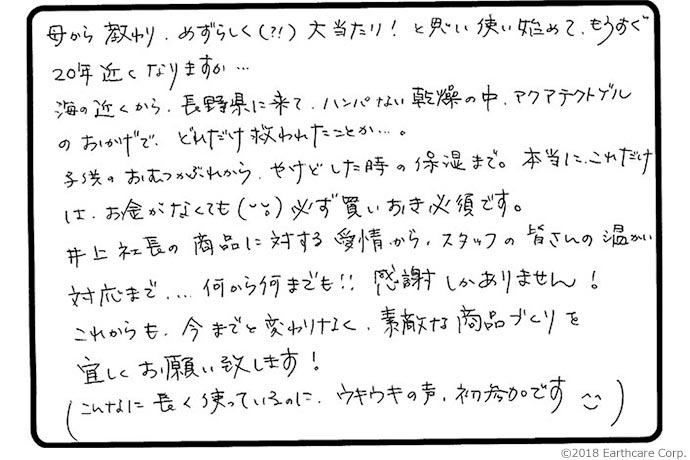 母から教わり、めずらしく(?!)大当たり!と思い使い始めて、もうすぐ
20年近くなりますか…
海の近くから、長野県に来て、ハンパない乾燥の中、アクアテクトゲル
のおかげで、どれだけ救われたことか…。
子供のおむつかぶれから、やけどした時の保湿まで。本当に、これだけ
は、お金がなくても(^^;)必ず買いおき必須です。
井上社長の商品に対する愛情から、スタッフの皆さんの温かい
対応まで....何から何までも!!感謝しかありません!
これからも、今までと変わりなく、素敵な商品づくりを
宜しくお願い致します!
(こんなに長く使っているのに、ウキウキの声、初参加です)
©2018 Earthcare Corp.